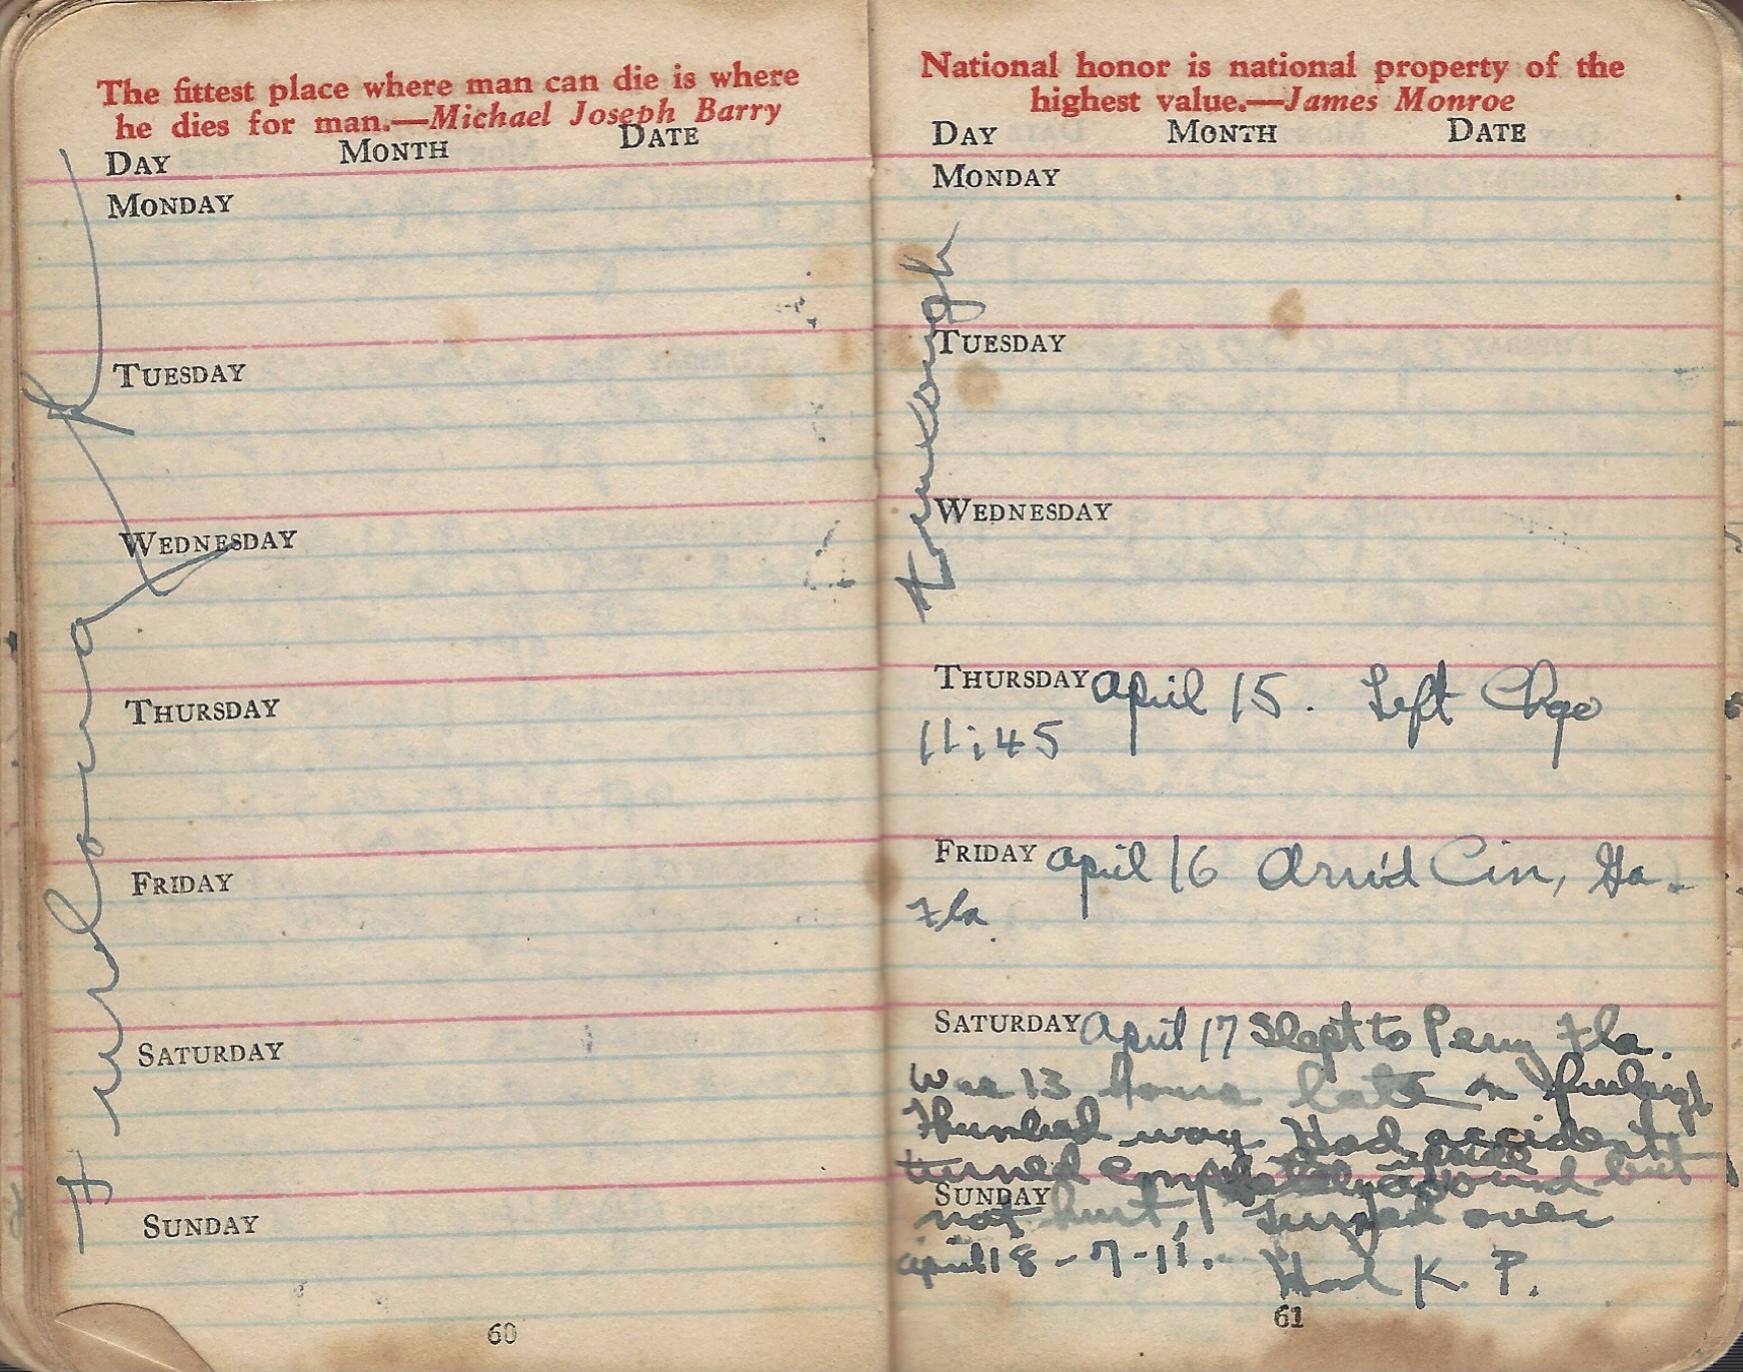 The fittest place where man can die is where
he dies for man.—Michael Joseph Barry
DAY MONTH DATE
MONDAY
TUESDAY
WEDNESDAY
THURSDAY
FRIDAY
SATURDAY
SUNDAY
Furlough
60
National honor is national property of the
highest value.—James Monroe
DAY MONTH DATE
MONDAY
TUESDAY
WEDNESDAY
THURSDAY April 15. Left Chgo
11:45
FRIDAY April 16 Arriv'd Cin, Ga.
Fla
SATURDAY April 17 Slept to Perry Fla.
Was 13 hours late on furlough
Thumbed way. Had accident
turned completely around but
upside
SUNDAY
not hurt, Turned over
April 18 - 7-11. Had K. P.
61